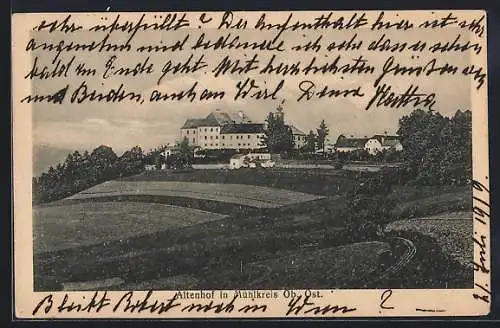 sehr überfüllt? Der Aufenthalt hier ist sehr
angenehm und bedauere ich sehr dass es schon
bald zu Ende geht. Mit herzlichsten Grüssen an
und Beiden, auch an Deine Hertha
Altenhof in Mühlkreis Ob. Öst.
Bleibt Robert noch in Wien ?
21. Juli 1919